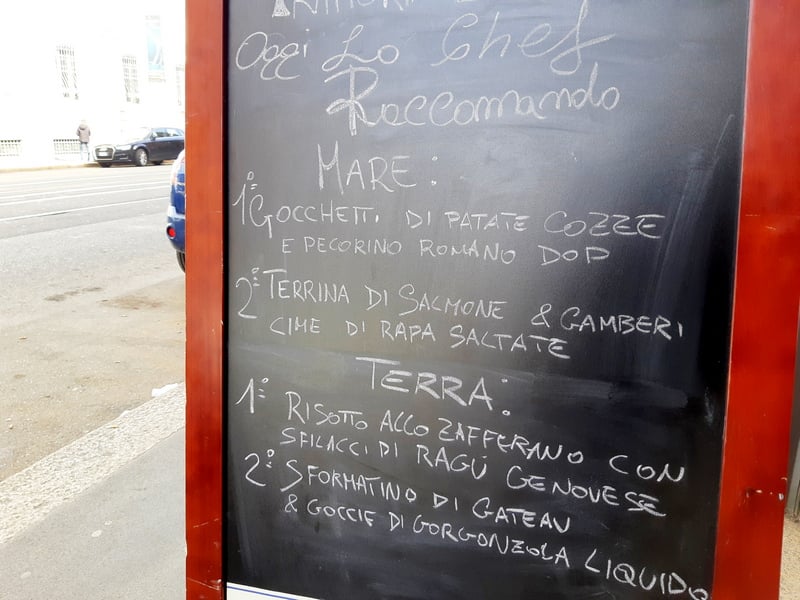 Oggi Lo Chef
Raccomando
MARE:
1° GOCCHETTI DI PATATE COZZE
E PECORINO ROMANO DOP
2° TERRINA DI SALMONE & GAMBERI
CIME DI RAPA SALTATE
TERRA:
1° RISOTTO ALLO ZAFFERANO CON
SFILACCI DI RAGÚ GENOVESE
2° SFORMATINO DI GATEAU
& GOCCIE DI GORGONZOLA LIQUIDO